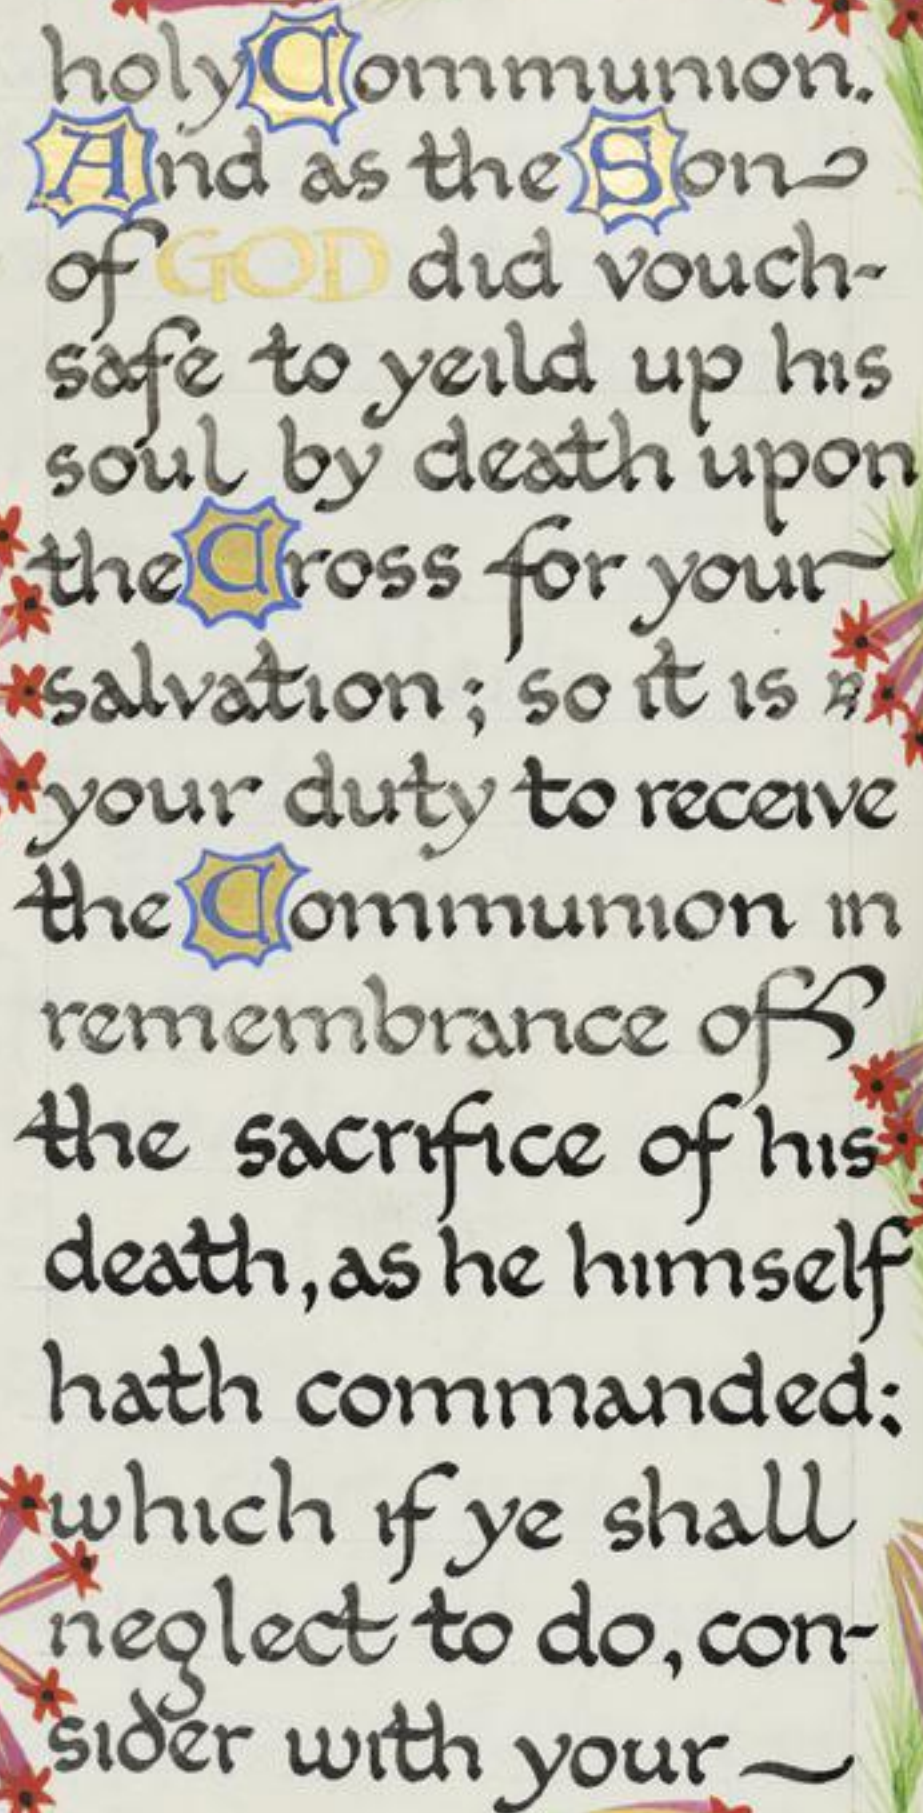 holy Communion.
And as the Son
of GOD did vouch-
safe to yeild up his
soul by death upon
the Cross for your
salvation; so it is
your duty to receive
the Communion in
remembrance of
the sacrifice of his
death, as he himself
hath commanded:
which if ye shall
neglect to do, con-
sider with your